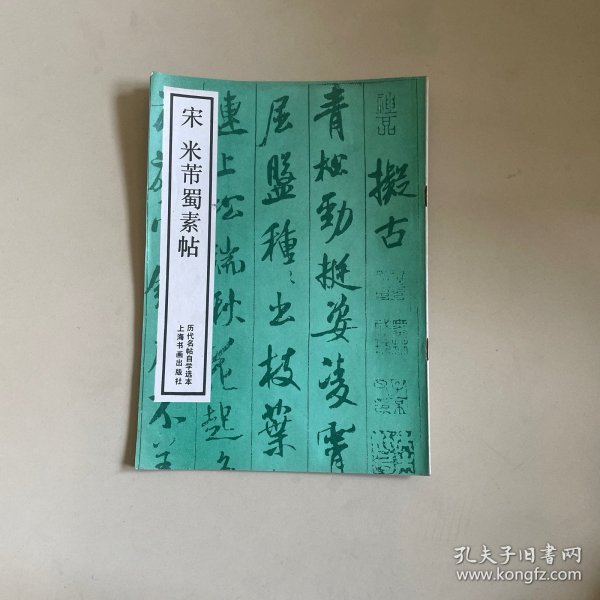 宋 米芾蜀素帖
历代名帖自学选本
上海书画出版社
擬古
青松勁挺姿凌霄
屈盤種〻出枝葉
連上松端秋花起
孔夫子旧书网
www.kongfz.com